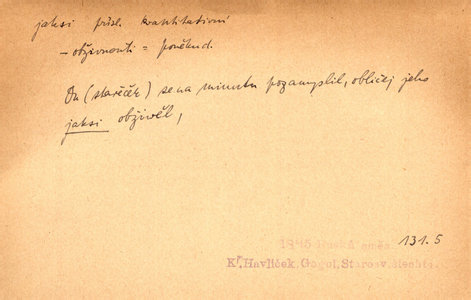 jaksi přísl. kvantitativní
– obživnouti = poněkud.
On (stařeček) se na minutu pozamyslil, obličej jeho
jaksi obživěl,
1845 Ruská
131.5
Kř. Havlíček, Gogol, Starosv. šlechta